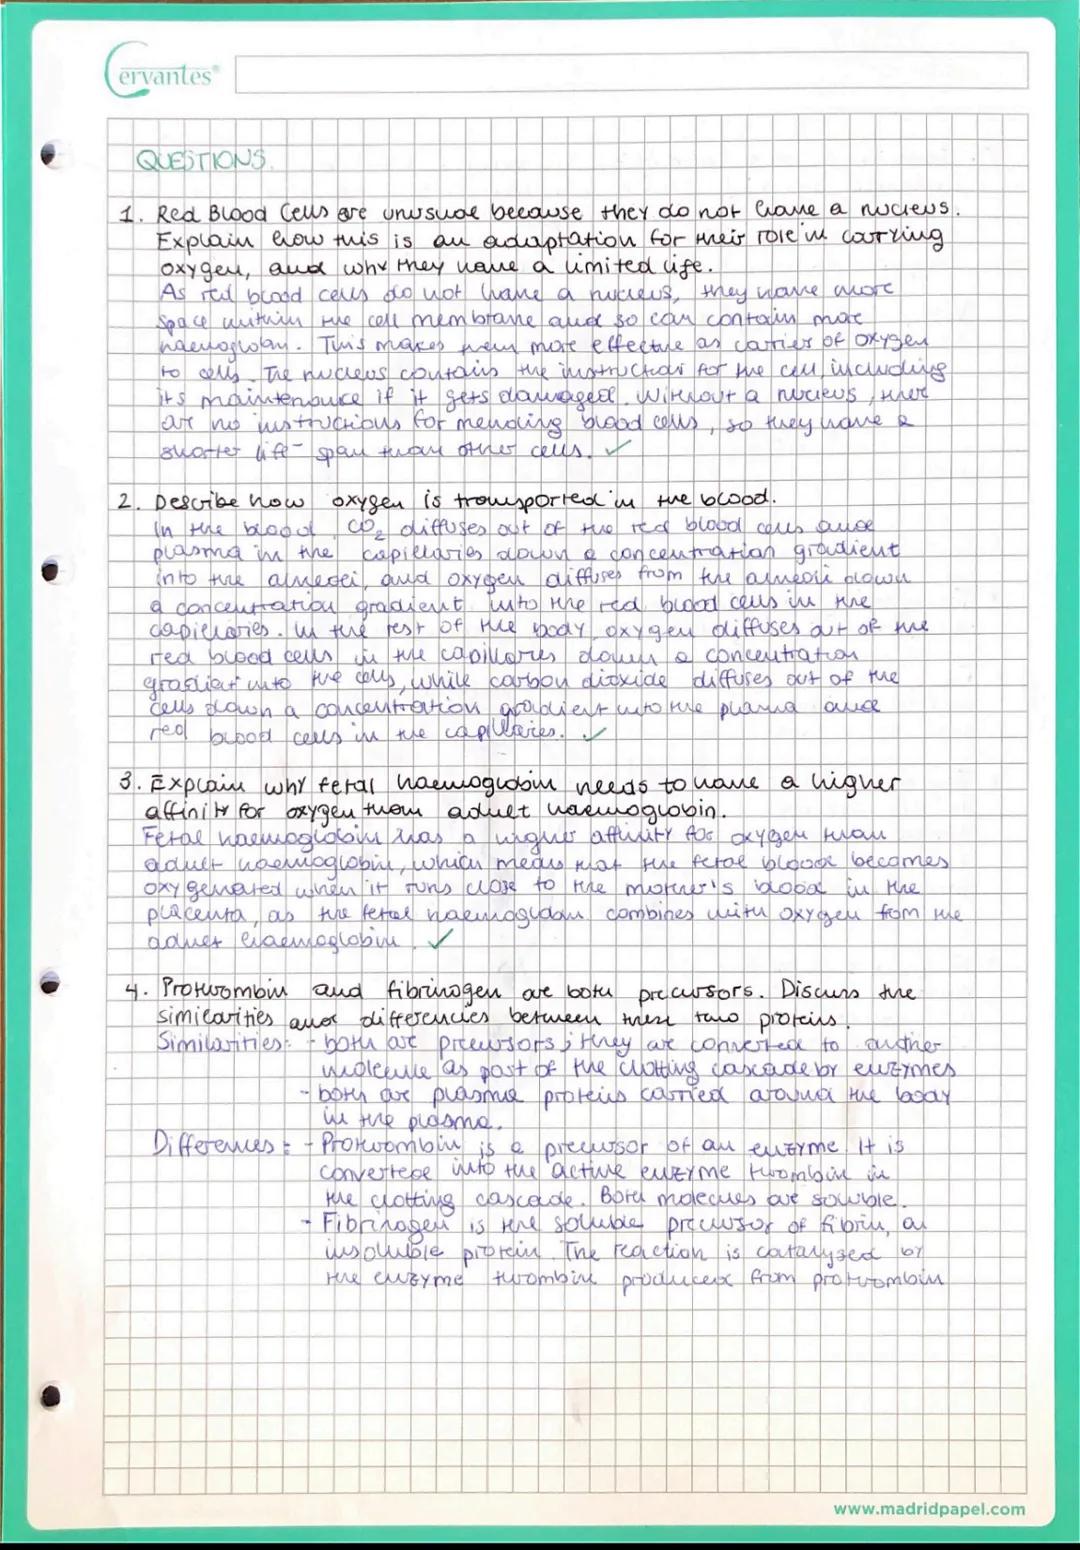 Cervantes®
QUESTIONS.
1. Red Blood Cells are unusual because they do not have a nucleus.
Explain how this is an adaptation for their role in carrying
oxygen, and why they have a limited life.
As red blood cells do not have a nucleus, they have more
space within the cell membrane and so can contain more
haemogloban. This makes them more effective as carrier of oxygen
to cells. The nucleus contains the instruction for the cell, including
its maintenance if it gets damaged. Without a nucleus, ther
are no instructions for mending blood cells, so they have a
shorter life-span than other cells. ✓
2. Describe how oxygen is transported in the blood.
In the blood, CO₂ diffuses out of the red blood cells and
plasma in the capillaries down a concentration gradient
into the alveoli, and oxygen diffuses from the alveoli down
a concentration gradient into the red blood cells in the
capillaries. In the rest of the body, oxygen diffuses out of the
red blood cells in the capillaries down a concentration
gradient into the cells, while carbon dioxide diffuses out of the
cells down a concentration gradient into the plasma and
red blood cells in the capillaries. ✓
3. Explain why fetal haemoglobin needs to have a higher
affinity for oxygen than adult haemoglobin.
Fetal haemoglobin has a higher affinity for oxygen than
adult haemoglobin, which means that the fetal blood becomes
oxygenated when it runs close to the mother's blood in the
placenta, as the fetal haemoglobin combines with oxygen from the
adult haemoglobin. ✓
4. Prothrombin and fibrinogen are both precursors. Discuss the
similarities and differencies between these two proteins.
Similarities: - both are precursors; they are converted to another
molecule as part of the clotting cascade by enzymes
- both are plasma proteins carried around the body
in the plasma.
Differences: - Prothrombin is a precursor of an enzyme. It is
converted into the active enzyme thrombin in
the clotting cascade. Both molecues are soluble.
- Fibrinogen is the soluble precursor of fibrin, an
insoluble protein. The reaction is catalysed by
the enzyme thrombin produced from prothrombin
www.madridpapel.com